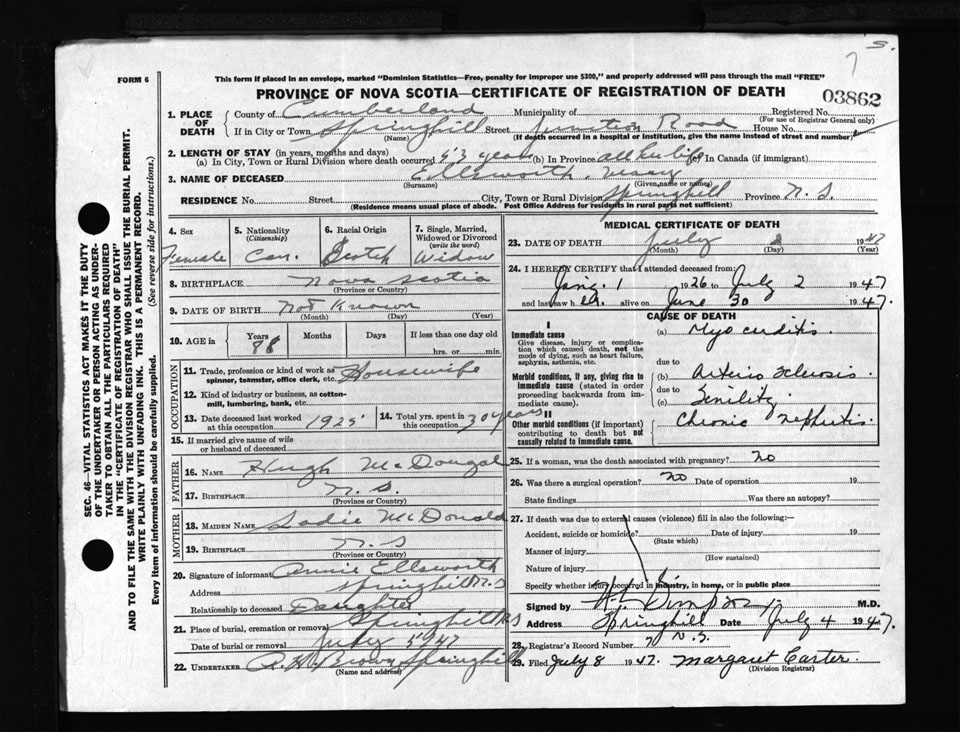 S.
7
FORM 6
This form if placed in an envelope, marked "Dominion Statistics—Free, penalty for improper use $300," and properly addressed will pass through the mail "FREE"
PROVINCE OF NOVA SCOTIA—CERTIFICATE OF REGISTRATION OF DEATH
03862
SEC. 46—VITAL STATISTICS ACT MAKES IT THE DUTY
OF THE UNDERTAKER OR PERSON ACTING AS UNDER-
TAKER TO OBTAIN ALL THE PARTICULARS REQUIRED
IN THE "CERTIFICATE OF REGISTRATION OF DEATH"
AND TO FILE THE SAME WITH THE DIVISION REGISTRAR WHO SHALL ISSUE THE BURIAL PERMIT.
WRITE PLAINLY WITH UNFADING INK. THIS IS A PERMANENT RECORD.
Every item of information should be carefully supplied. (See reverse side for instructions.)
1. PLACE OF DEATH
County of Cumberland Municipality of Registered No.
(For use of Registrar General only)
If in City or Town Springhill Street Junction Road House No.
(Name) (If death occurred in a hospital or institution, give the name instead of street and number)
2. LENGTH OF STAY (in years, months and days)
(a) In City, Town or Rural Division where death occurred 53 years (b) In Province all her life (c) In Canada (if immigrant)
3. NAME OF DECEASED Ellsworth, Mary
(Surname) (Given name or names)
RESIDENCE No. Street City, Town or Rural Division Springhill Province N.S.
(Residence means usual place of abode. Post Office Address for residents in rural parts not sufficient)
4. Sex Female
5. Nationality (Citizenship) Can.
6. Racial Origin Scotch
7. Single, Married, Widowed or Divorced (write the word) Widow
8. BIRTHPLACE Nova Scotia
(Province or Country)
9. DATE OF BIRTH Not Known
(Month) (Day) (Year)
10. AGE in Years 88 Months Days If less than one day old
hrs. or min.
OCCUPATION
11. Trade, profession or kind of work as spinner, teamster, office clerk, etc. Housewife
12. Kind of industry or business, as cotton-mill, lumbering, bank, etc.
13. Date deceased last worked at this occupation 1925
14. Total yrs. spent in this occupation 30 years
15. If married give name of wife or husband of deceased
FATHER
16. NAME Hugh McDougal
17. BIRTHPLACE N.S.
(Province or Country)
MOTHER
18. MAIDEN NAME Sadie McDonald
19. BIRTHPLACE N.S
(Province or Country)
20. Signature of informant Annie Ellsworth
Address Springhill N.S
Relationship to deceased Daughter
21. Place of burial, cremation or removal Springhill NS
Date of burial or removal July 5 1947
22. UNDERTAKER A.H. Brown Springhill
(Name and address)
MEDICAL CERTIFICATE OF DEATH
23. DATE OF DEATH July 2 1947
(Month) (Day)
24. I HEREBY CERTIFY that I attended deceased from:
Jan. 1 1926 to July 2 1947
and last saw h er alive on June 30 1947.
CAUSE OF DEATH
I
Immediate cause
Give disease, injury or complication which caused death, not the mode of dying, such as heart failure, asphyxia, asthenia, etc.
(a) Myocarditis.
due to
Morbid conditions, if any, giving rise to immediate cause (stated in order proceeding backwards from immediate cause).
(b) Arterio Sclerosis.
due to
(c) Senility
II
Other morbid conditions (if important) contributing to death but not causally related to immediate cause.
Chronic Nephritis.
25. If a woman, was the death associated with pregnancy? No
26. Was there a surgical operation? No Date of operation 19
State findings Was there an autopsy?
27. If death was due to external causes (violence) fill in also the following:—
Accident, suicide or homicide? Date of injury 19
(State which)
Manner of injury
(How sustained)
Nature of injury
Specify whether injury occurred in industry, in home, or in public place
Signed by M.D.
Address Springhill Date July 4 1947.
N.S.
28. Registrar's Record Number
29. Filed July 8 1947. Margaret Carter.
(Division Registrar)